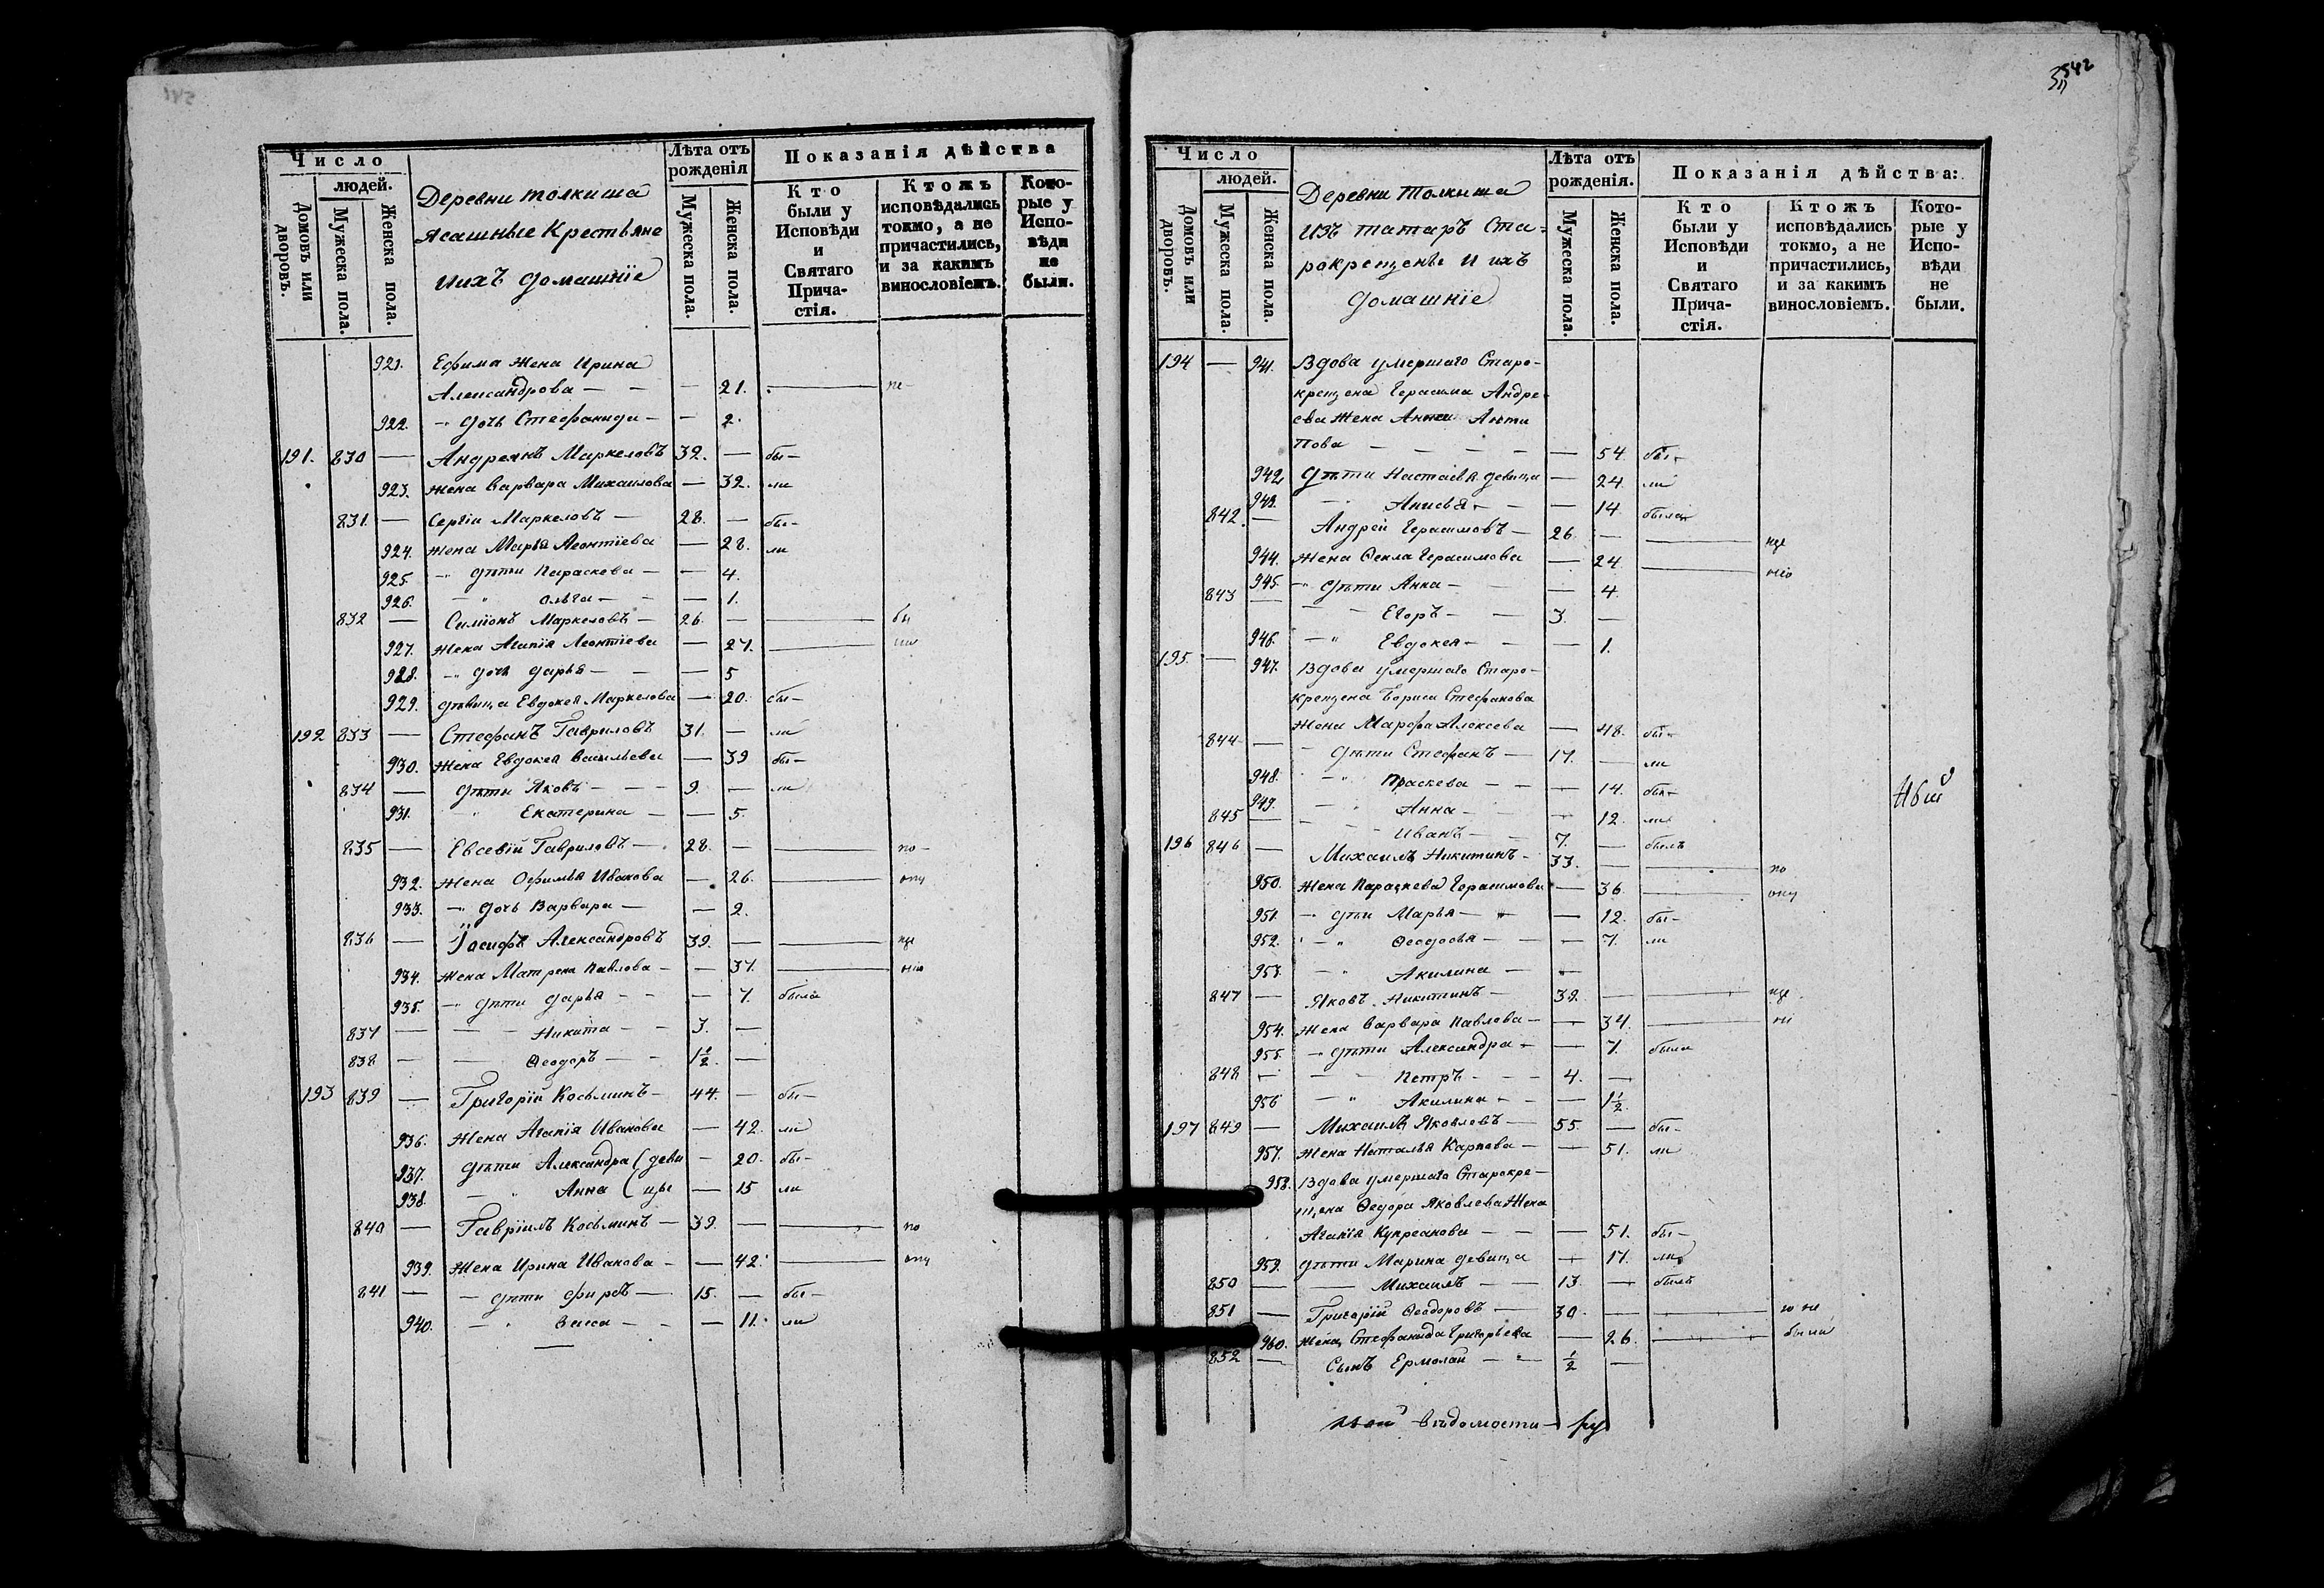 542
Число
людей.
Домовъ или дворовъ.
Мужеска пола.
Женска пола.
Деревни толкиша
Ясашные Крестьяне
ихъ домашніе
Лѣта отъ рожденія
Мужеска пола.
Женска пола.
Показанія дѣйства
Кто были у Исповѣди и Святаго Прича-стія.
Ктожъ исповѣдались токмо, а не причастились, и за какимъ винословіемъ.
Кото-рые у Испо-вѣди не были.
921. Ефима жена Ирина
Александрова — — — 21. — не-
922. — дочь Стефанида — — 2.
191. 830 — Андреянъ Маркеловъ 32. — бы-
923. жена Варвара Михаилова — 32. ли
831. — Сергіи Маркеловъ — 28. — бы-
924. жена Марья Леонтіева — 28. ли
925. — дѣти Параскева — — 4.
926. — " Ольга — — 1.
832 — Симіонъ Маркеловъ — 26. — — бы
927. жена Агапія Леонтіева — 27. — ли
928. — дочь Дарья — — 5
929. дѣвица Евдокея Маркелова — 20. бы-
192 833 — Стефанъ Гавриловъ 31. — ли
930. жена Евдокея Васильева — 39 бы-
834 — дѣти Яковъ — — 9. — ли
931. — " Екатерина — — 5.
835 — Евсевій Гавриловъ — 28. — — по-
932. жена Офимья Иванова — 26. — опу
933. — дочь Варвара — — 2.
836 — Іосифъ Александровъ 39. — — уще
934. жена Матрена Павлова — — 37. — нію
935. — дѣти Дарья — — — 7. была
837 — — Никита — — 3. —
838 — — Ѳеодоръ — — 1½. —
193 839 — Григорій Косьминъ — 44. — бы-
936. жена Агапія Иванова — 42. ли
937. дѣти Александра (деви — 20. бы-
938. — " Анна (цы — 15 ли
840 — Гавріилъ Косьминъ — 39. — — по
939. жена Ирина Иванова — — 42. — опу
841 — — дѣти Фирсъ — 15. — бы-
940. — " Васса — — — 11. ли
Число
людей.
Домовъ или дворовъ.
Мужеска пола.
Женска пола.
Деревни Толкиша
изъ татаръ Ста-
рокрещены и ихъ
домашніе
Лѣта отъ рожденія.
Мужеска пола.
Женска пола.
Показанія дѣйства:
Кто были у Исповѣди и Святаго Прича-стія.
Ктожъ исповѣдались токмо, а не причастились, и за какимъ винословіемъ.
Кото-рые у Испо-вѣди не были.
194 — 941. Вдова умершаго Старо-
крещена Герасима Андре-
ева жена Анна Анти
пова — — — — — 54. бы-
942. дѣти Настасья девица — 24. ли
943. — " Анисья — — 14. была
842. — Андрей Герасимовъ — 26. — — уще
944. жена Ѳекла Герасимова — 24. — нію
945. — " дѣти Анна — — 4.
843 — — Егоръ — — 3. —
946. — " Евдокея — — — 1.
195. — 947. Вдова умершаго Старо-
крещена Бориса Стефанова
жена Марфа Алексеева — 48. бы-
844 — — дѣти Стефанъ — 17. — ли
948. — " Праскева — — — 14. бы-
949. — " Анна — — 12. ли
845 — — Иванъ — — 7. — былъ
196 846 — Михаилъ Никитинъ — 33. — — по
950. жена Параскева Герасимова — 36. — опу
951. — дѣти Марья — — — 12. бы-
952. — " Ѳеодосья — — — 7. ли
953. — " Акилина — —
847 — Яковъ Никитинъ — 39. — — уще
954. жена Варвара Павлова — — 34. — ні
955. — дѣти Александра — — 7. была
848 — — — Петръ — — — 4. —
956 — " Акилина — — — 1½.
197 849 — Михаилъ Яковлевъ — 55. — бы-
957. жена Наталья Карпова — — 51. ли
958. Вдова умершаго Старокре-
щена Ѳедора Яковлева жена
Агапія Купреанова — — — 51. бы-
959. дѣти Марина девица — 17. ли
850 — — Михаилъ — — 13. — былъ
851 — Григорій Ѳеодоровъ — 30. — —
960. жена Стефанида Григорьева — 26. — были
852 — Сынъ Ермолай — — ½ —
вѣдомости ру